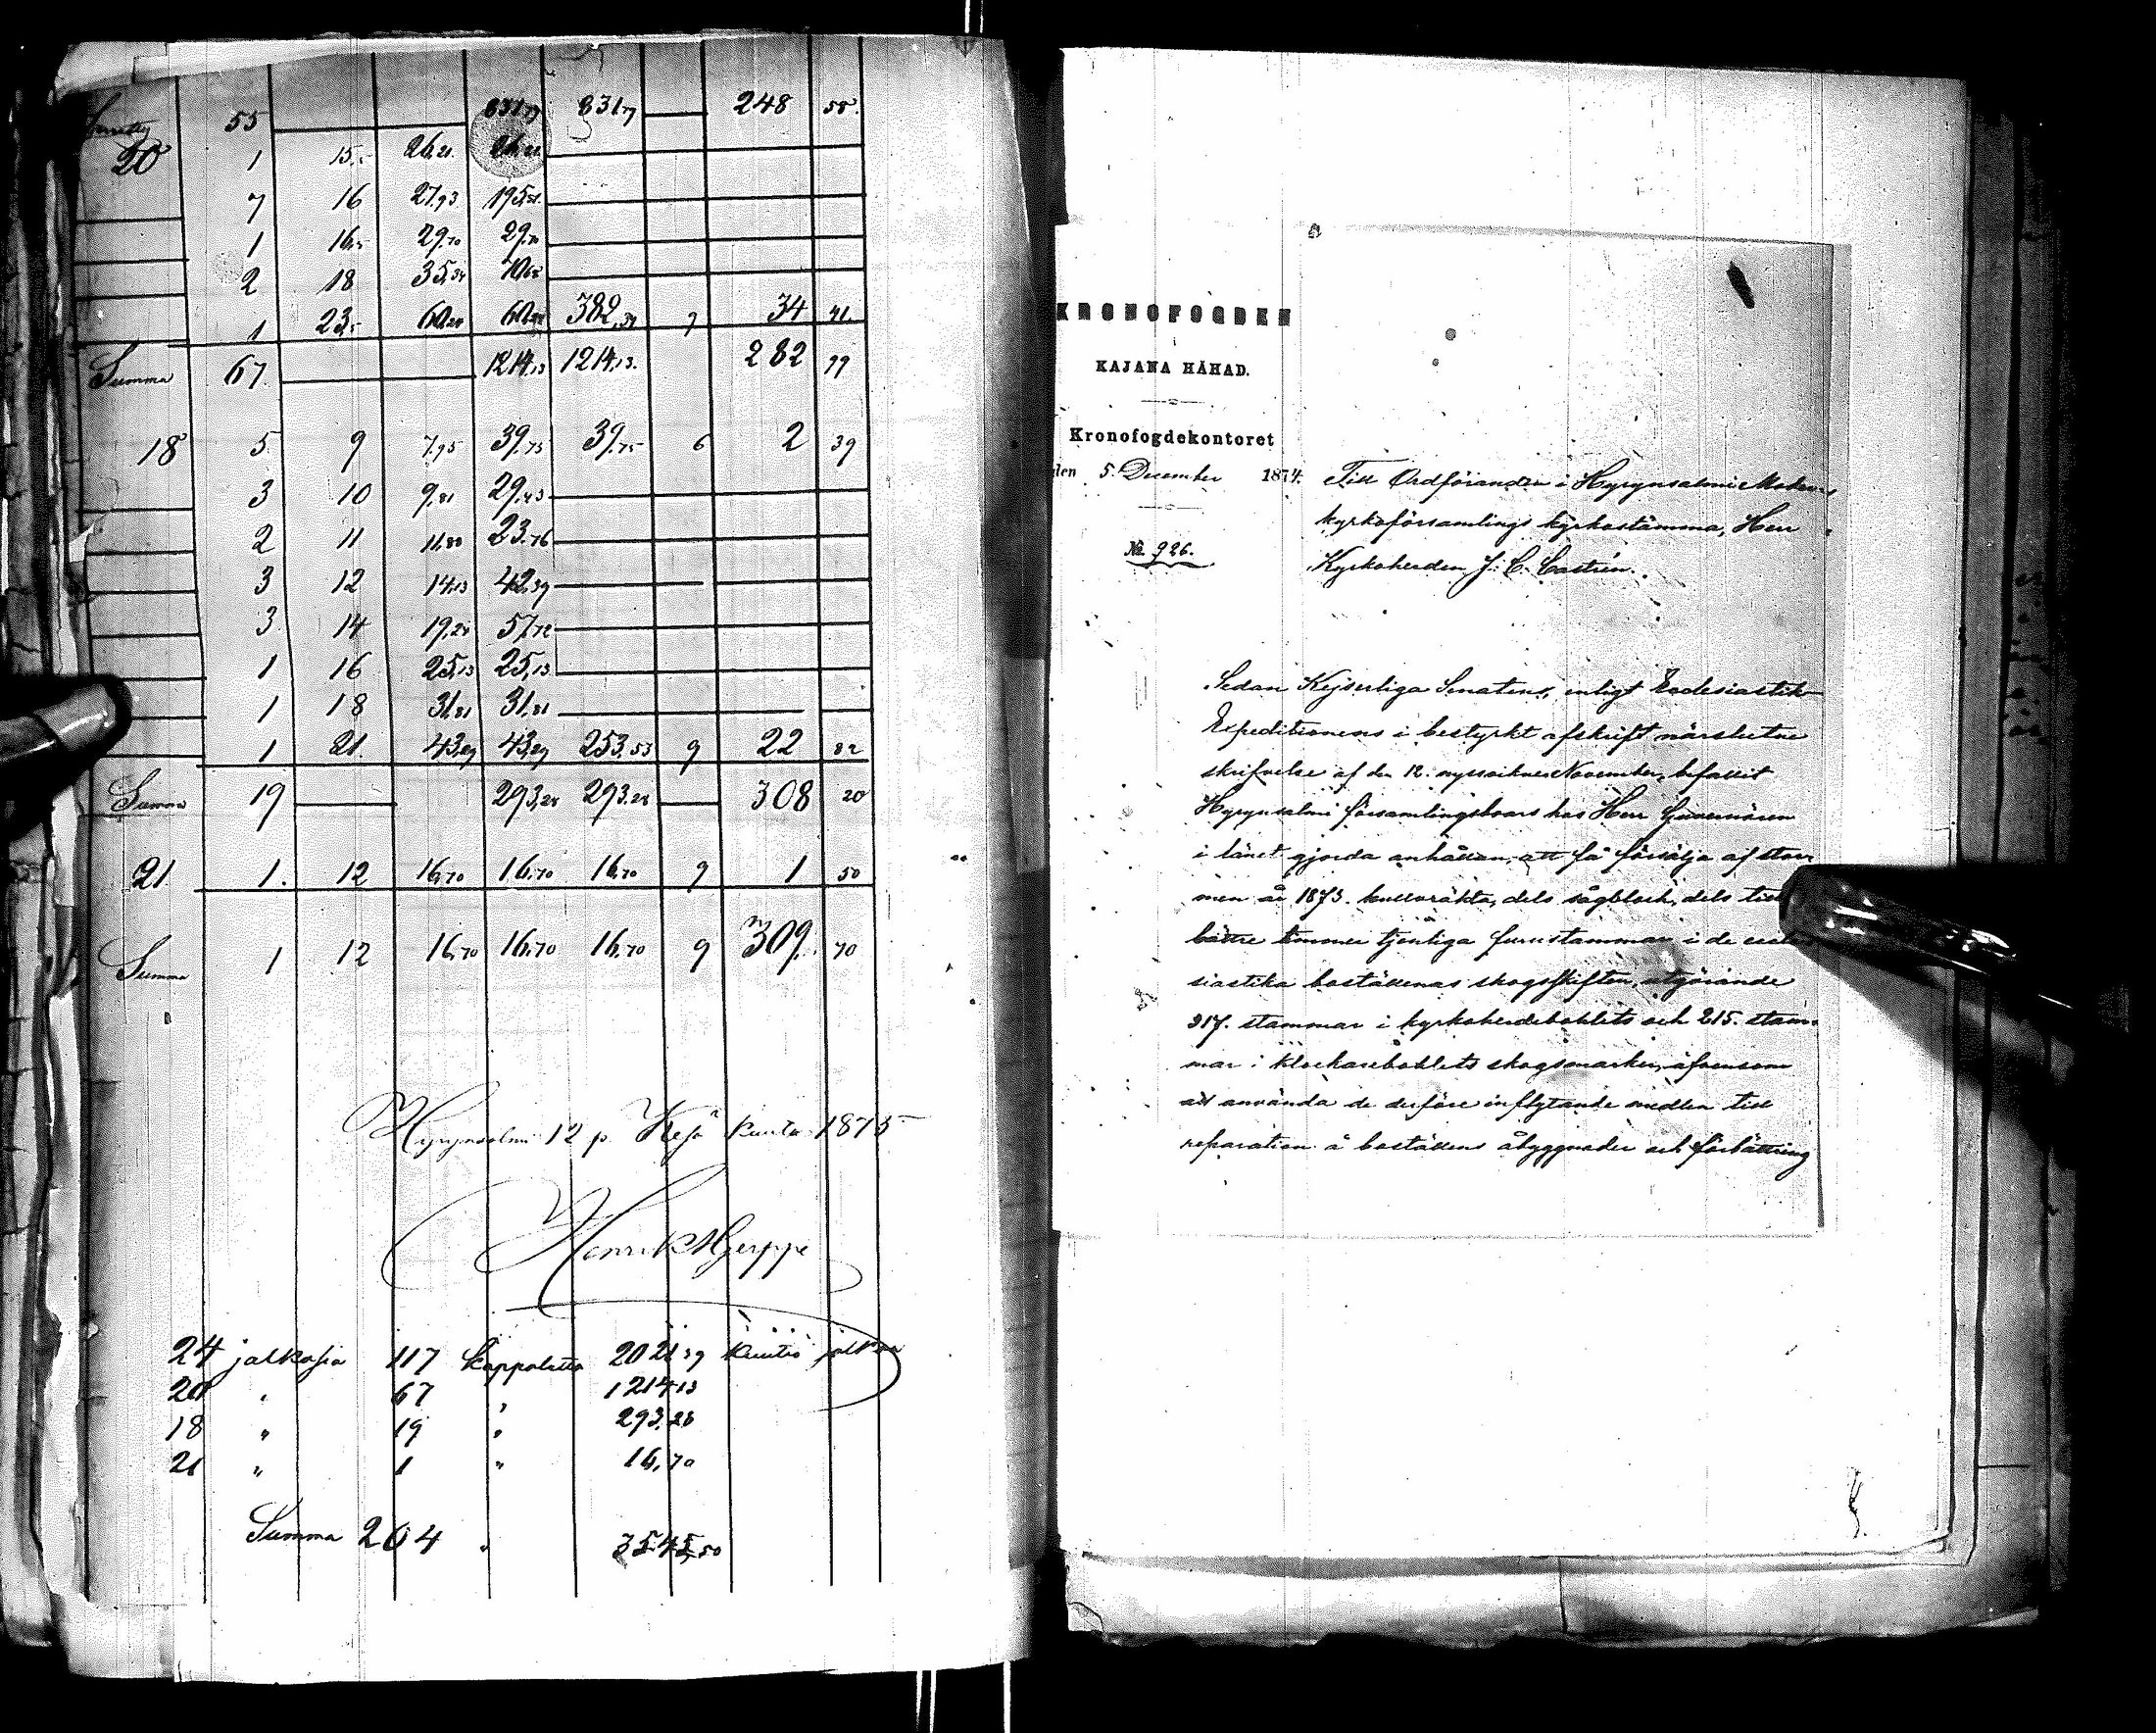 55 831,79 831,79 248 58.
20 1 15.5 26,21. 26,21
7 16 27,93 195,51.
1 16.5 29,70 29,70
2 18 35,34 70,68
1 23,5 60,24 60,24 382,34 9 34 41.
Summa 67. 1214,13 1214,13. 282 99
18 5 9 7,95 39,75 39,75 6 2 39
3 10 9,81 29,43
2 11 11,88 23,76
3 12 14,13 42,39
3 14 19,24 57,72
1 16 25,13 25,13
1 18 31,81 31,81
1 21. 43,29 43,29 253,53 9 22 82
Summa 19 293,28 293.28 308 20
21. 1. 12 16,70 16,70 16,70 9 1 50
Summa 1 12 16,70 16,70 16,70 9 309. 70
Hyrynsalmi 12 p. Kesä kuuta 1875
Henrik Herppe
24 jalkasia 117 kappaletta 2021 39 kuutio jalkaa
20 " 67 " 1214 13
18 " 19 " 293,28
21 " 1 " 16,70
Summa 204 " 3545,50
KRONOFOGDEN
KAJANA HÄRAD.
Kronofogdekontoret
den 5. December 1874.
No. 926.
Till Ordföranden i Hyrynsalmi Moder
kyrkoförsamlings kyrkostämma, Herr
Kyrkoherden J. C. Castrén.
Sedan Kejserliga Senaten, enligt Ecclesiastik
Expeditionens i bestyrkt afskrift närslutne
skrifvelse af den 12. nyssvikne November, befallit
Hyrynsalmi församlingsboars hos Herr Guvernören
i länet gjorda anhållan, att få försälja af stor
men år 1873. kullvräkta, dels sågblock, dels till
bättre timmer tjenliga furustammar i de eccle
siastika boställenas skogsskiften, utgörande
317. stammar i kyrkoherdebohlets och 215. stam
mar i klockarebohlets skogsmarker, äfvensom
att använda de derföre inflytande medlen till
reparation å boställens åbyggnader och förbättring